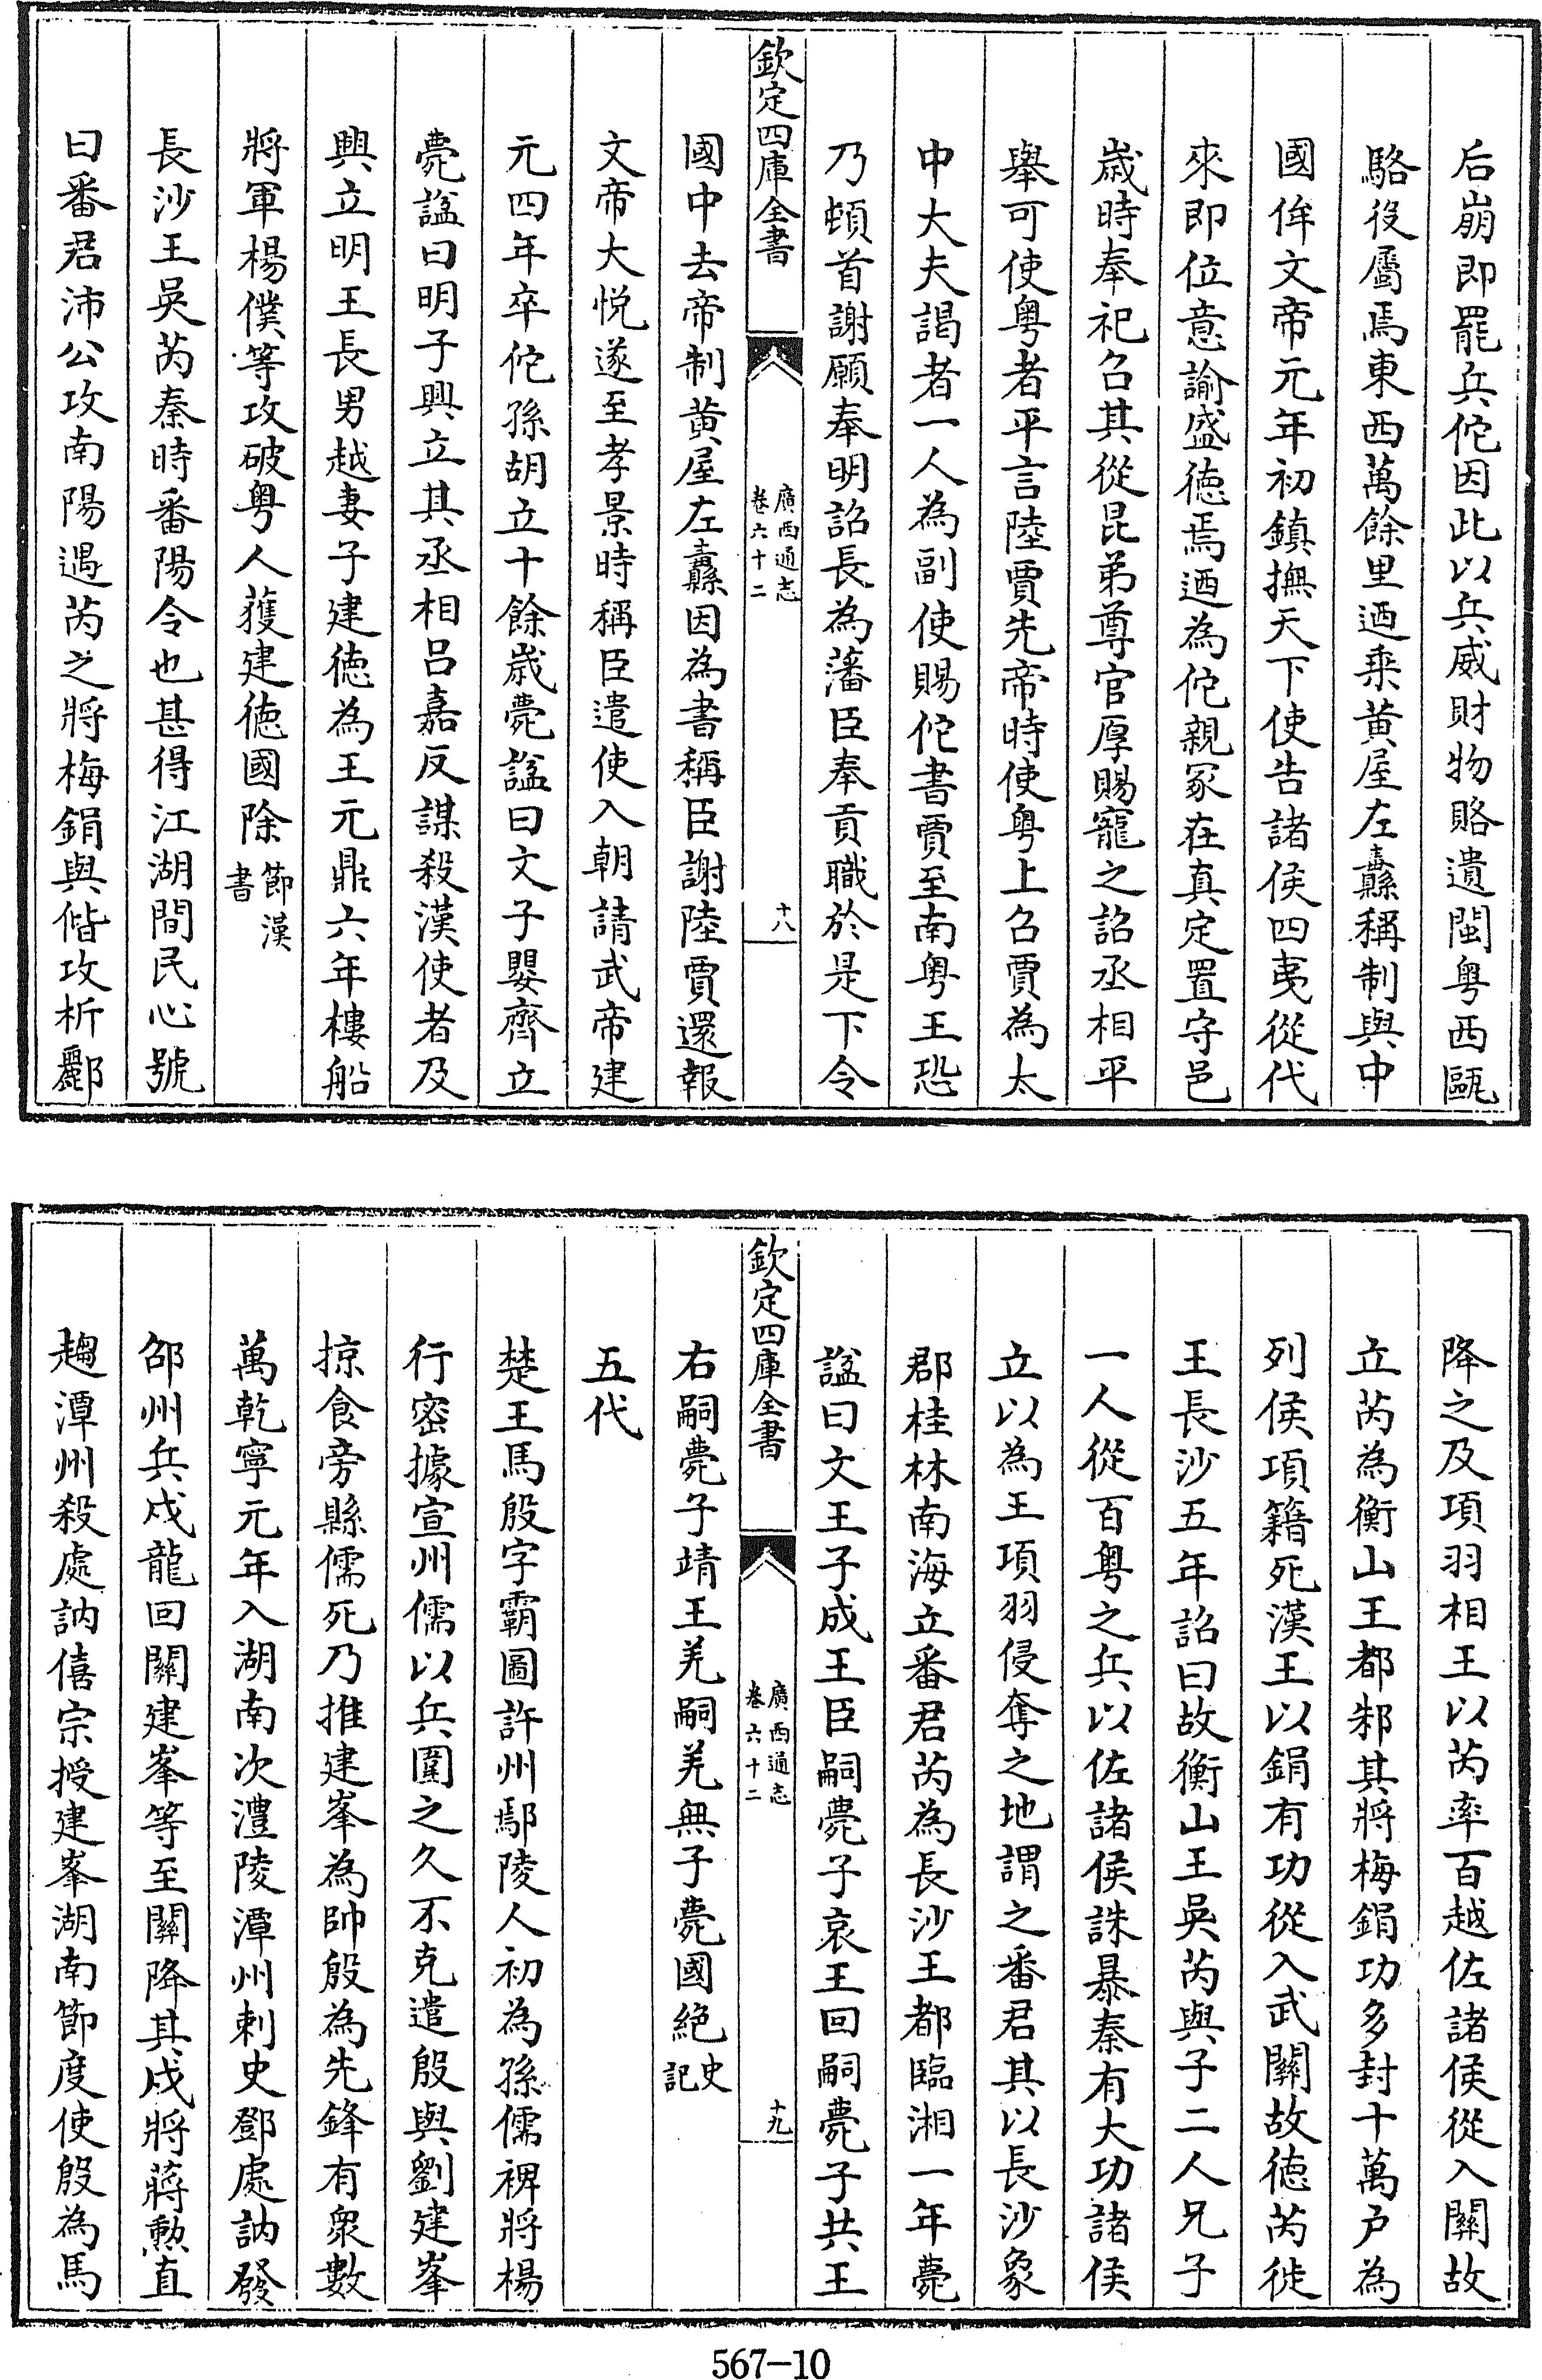 后崩即罷兵佗因此以兵威財物賂遺閩粤西甌
駱役屬焉東西萬餘里迺乗黄屋左纛稱制與中
國侔文帝元年初鎮撫天下使告諸侯四夷從代
來即位意諭盛徳焉迺為佗親冢在真定置守邑
歲時奉祀召其從昆弟尊官厚賜寵之詔丞相平
舉可使粤者平言陸賈先帝時使粤上召賈為太
中大夫謁者一人為副使賜佗書賈至南粤王恐
乃頓首謝願奉明詔長為藩臣奉貢職於是下令
欽定四庫全書
廣西通志
卷六十二
十八
國中去帝制黄屋左纛因為書稱臣謝陸賈還報
文帝大悦遂至孝景時稱臣遣使入朝請武帝建
元四年卒佗孫胡立十餘歲薨諡曰文子嬰齊立
薨諡曰明子興立其丞相吕嘉反謀殺漢使者及
興立明王長男越妻子建徳為王元鼎六年樓船
將軍楊僕等攻破粤人獲建徳國除節漢
書
長沙王吳芮秦時番陽令也甚得江湖間民心號
曰番君沛公攻南陽遇芮之將梅鋗與偕攻析酈
降之及項羽相王以芮率百越佐諸侯從入關故
立芮為衡山王都邾其將梅鋗功多封十萬户為
列侯項籍死漢王以鋗有功從入武關故徳芮徙
王長沙五年詔曰故衡山王吳芮與子二人兄子
一人從百粤之兵以佐諸侯誅暴秦有大功諸侯
立以為王項羽侵奪之地謂之番君其以長沙象
郡桂林南海立番君芮為長沙王都臨湘一年薨
諡曰文王子成王臣嗣薨子哀王回嗣薨子共王
欽定四庫全書
廣西通志
卷六十二
十九
右嗣薨子靖王羌嗣羌無子薨國絶史
記
五代
楚王馬殷字霸圖許州鄢陵人初為孫儒裨將楊
行密據宣州儒以兵圍之久不克遣殷與劉建峯
掠食旁縣儒死乃推建峯為帥殷為先鋒有衆數
萬乾寧元年入湖南次澧陵潭州刺史鄧處訥發
邵州兵戍龍回關建峯等至關降其戍將蔣勲直
趨潭州殺處訥僖宗授建峯湖南節度使殷為馬
567-10